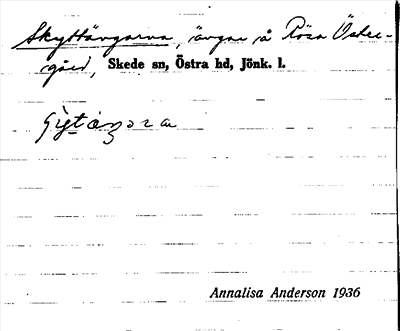 Skyttängarna, ängar å Rösa Öster-
gård, Skede sn, Östra hd, Jönk. l.
Annalisa Anderson 1936